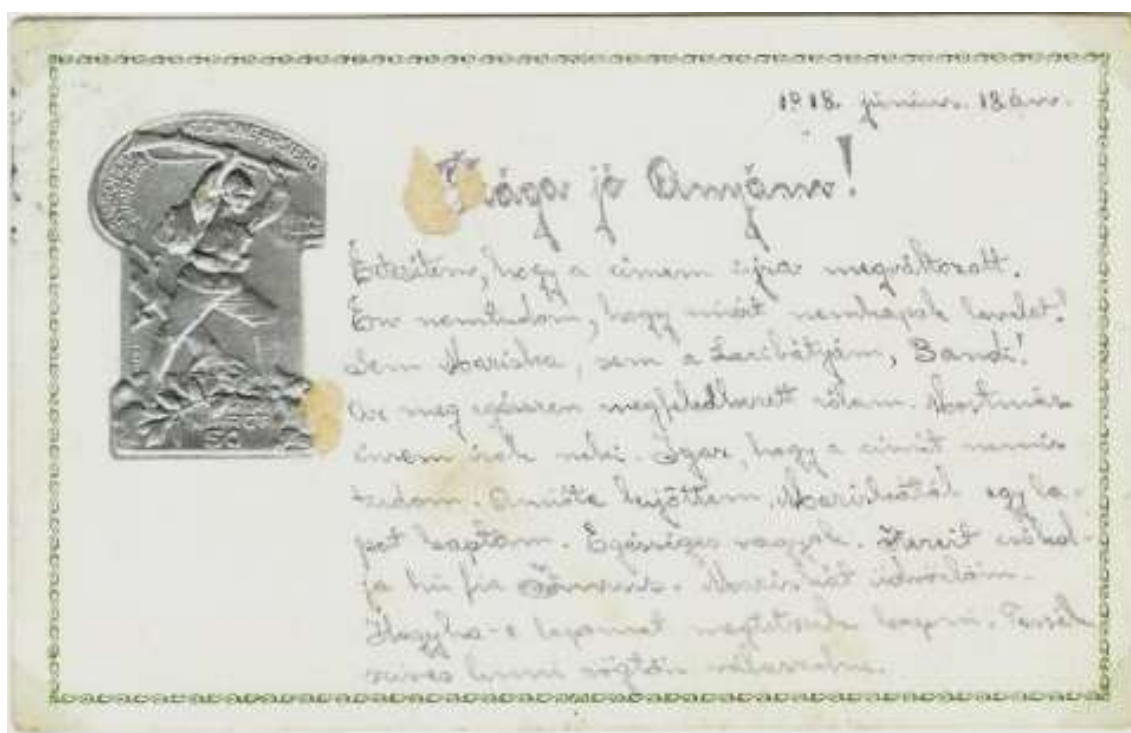 1918. június. 18án.
Drága jó Anyám!
Értesitem, hogy a cimem ujra megváltozott.
Én nemtudom, hogy miért nemkapok levelet!
Sem Mariska, sem a Lacibátyám, Bandi!
Az meg egészen megfeledkezett rólam. Mostmár
irok neki. Igaz, hogy a cimét nemis
tudom. Amióta kijöttem, Mariskától egy la-
pot kaptam. Egésséges vagyok. Kezeit csókol-
ja hű fia János. Mariskát üdvözlöm.
lapomat megtetszik kapni. Tessék
szives lenni rögtön válaszolni.
50